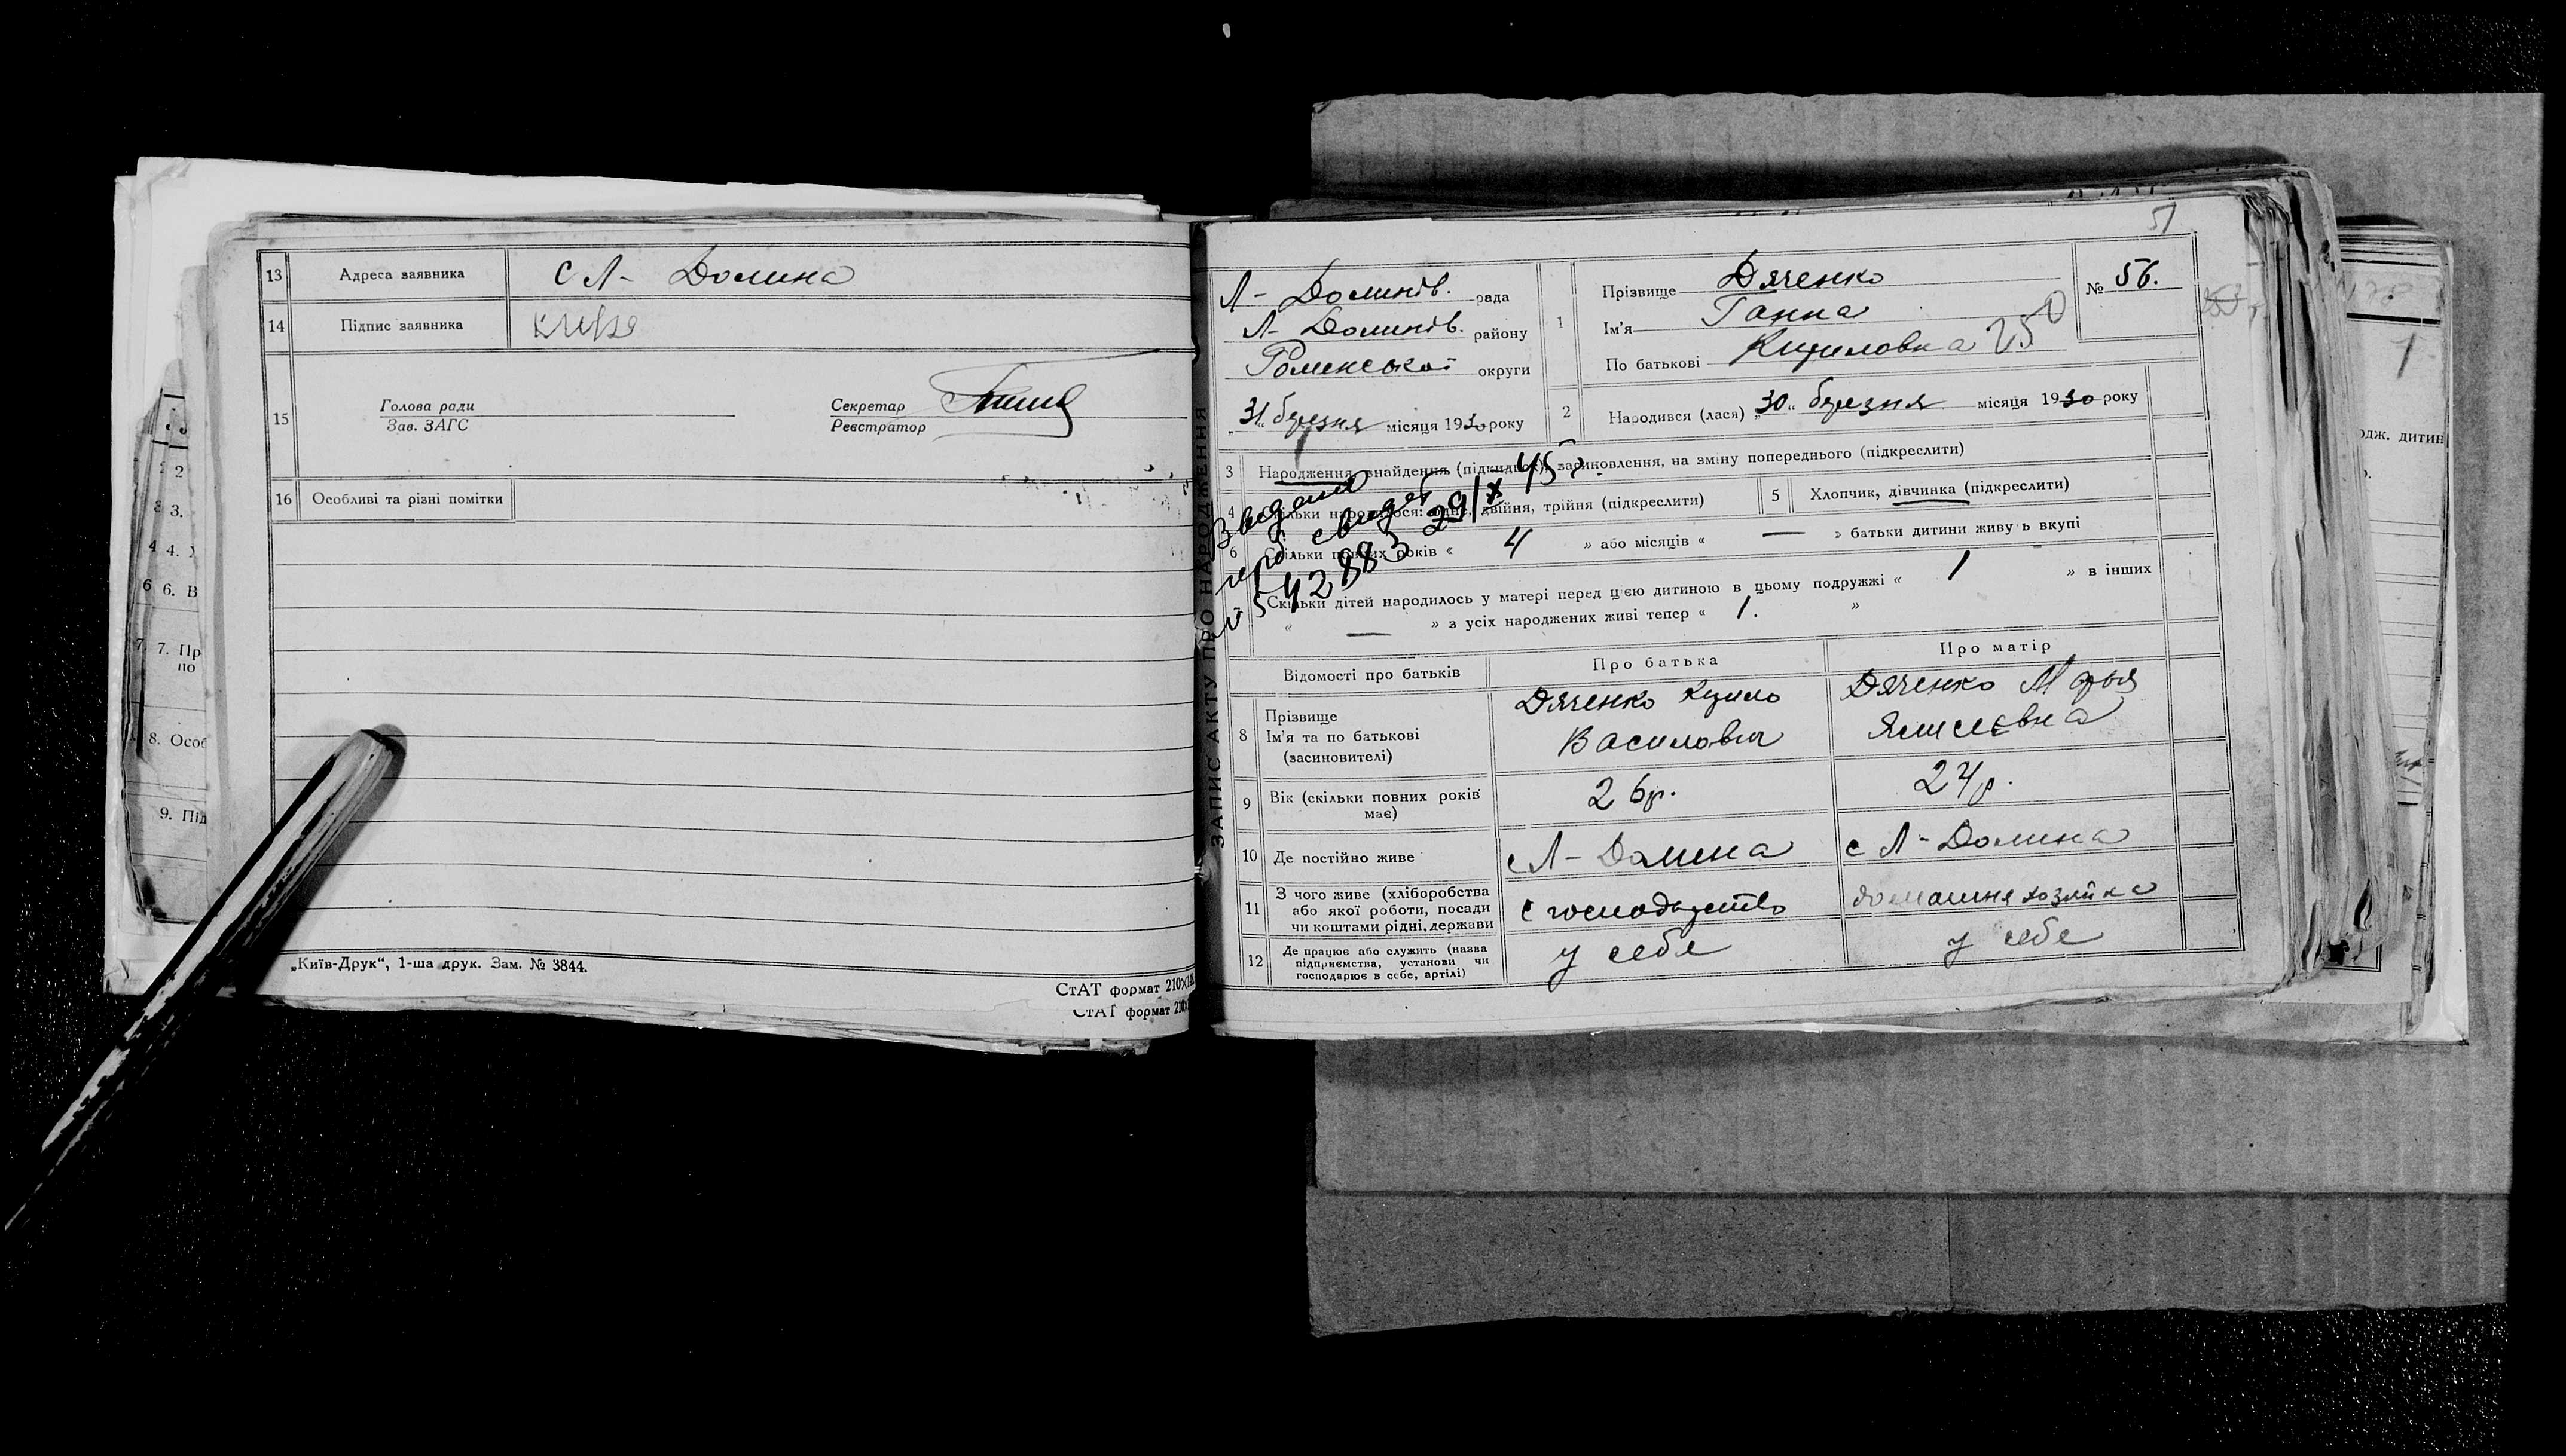 13 Адреса заявника с Л- Долина
14 Підпис заявника
15 Голова ради Секретар
Зав. ЗАГС Реєстратор
16 Особливі та різні помітки
„Київ-Друк“, 1-ша друк. Зам. № 3844.
СтАТ формат 210×
СтАТ формат 210×
2
3.
4 4.
6 6. В
7. 7. Пр
по
8. Особ
9. Під
ЗАПИС АКТУ ПРО НАРОДЖЕННЯ
51
Л- Долинів. рада
Л- Долинів. району
Роменської округи
„31“ березня місяця 1930 року
1 Прізвище Дяченко
Ім'я Ганна
По батькові Кириловна 250
№ 56.
2 Народився (лася) „30“ березня місяця 1930 року
3 Народження, знайдення (підкидьок), засиновлення, на зміну попереднього (підкреслити)
4 Скільки народилося: одне, двійня, трійня (підкреслити)
5 Хлопчик, дівчинка (підкреслити)
6 Скільки повних років « 4 » або місяців « — » батьки дитини живуть вкупі
7 Скільки дітей народилось у матері перед цією дитиною в цьому подружжі « 1 » в інших
« — » з усіх народжених живі тепер « 1. »
свидет 29/X 45 р.
542883
Відомості про батьків Про батька Про матір
8 Прізвище
Ім'я та по батькові
(засиновителі)
Дяченко Кирило
Василович
Дяченко Марья
9 Вік (скільки повних років має) 26р. 24р.
10 Де постійно живе с Л- Долина с Л- Долина
11 З чого живе (хліборобства
або якої роботи, посади
чи коштами рідні, держави
с господарство
домашня хозяйка
12 Де працює або служить (назва
підприємства, установи чи
господарює в себе, артілі)
у себе
у себе
одж. дитин